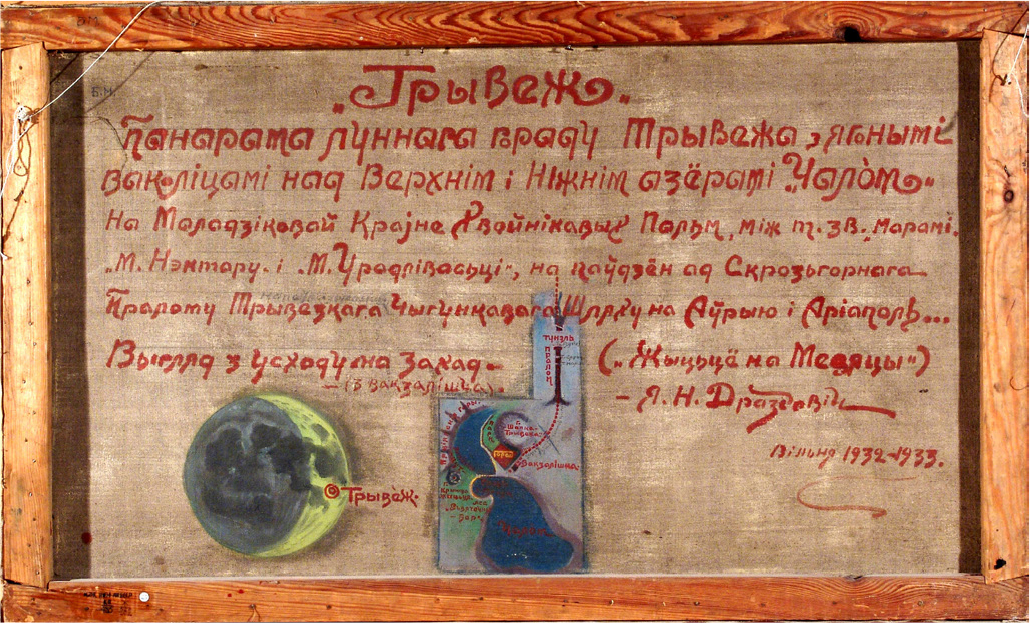 Б.М.
„Трывеж„
Панарама луннага граду Трывежа з ягонымі
ваколіцамі над Верхнім і Ніжнім азёрамі „Чалом„
На Маладзіковай Краіне Двойнікавых Пальм, між т. зв. Марамі.
„М. Нэктару. і „М. Уродлівасьці", на паўдзён ад Скрозьгорнага
Пралому Трывезкага Чыгункавага Шляху на Аўрыю і Аріаполь...
Выгляд з усходу на захад.
(„Жыцьцё на Месяцы")
— (з вакзалішча).
— Я. Н. Драздовіч
Вільня 1932-1933.
Трывеж.
тунэль
пралом
Вакзалішча